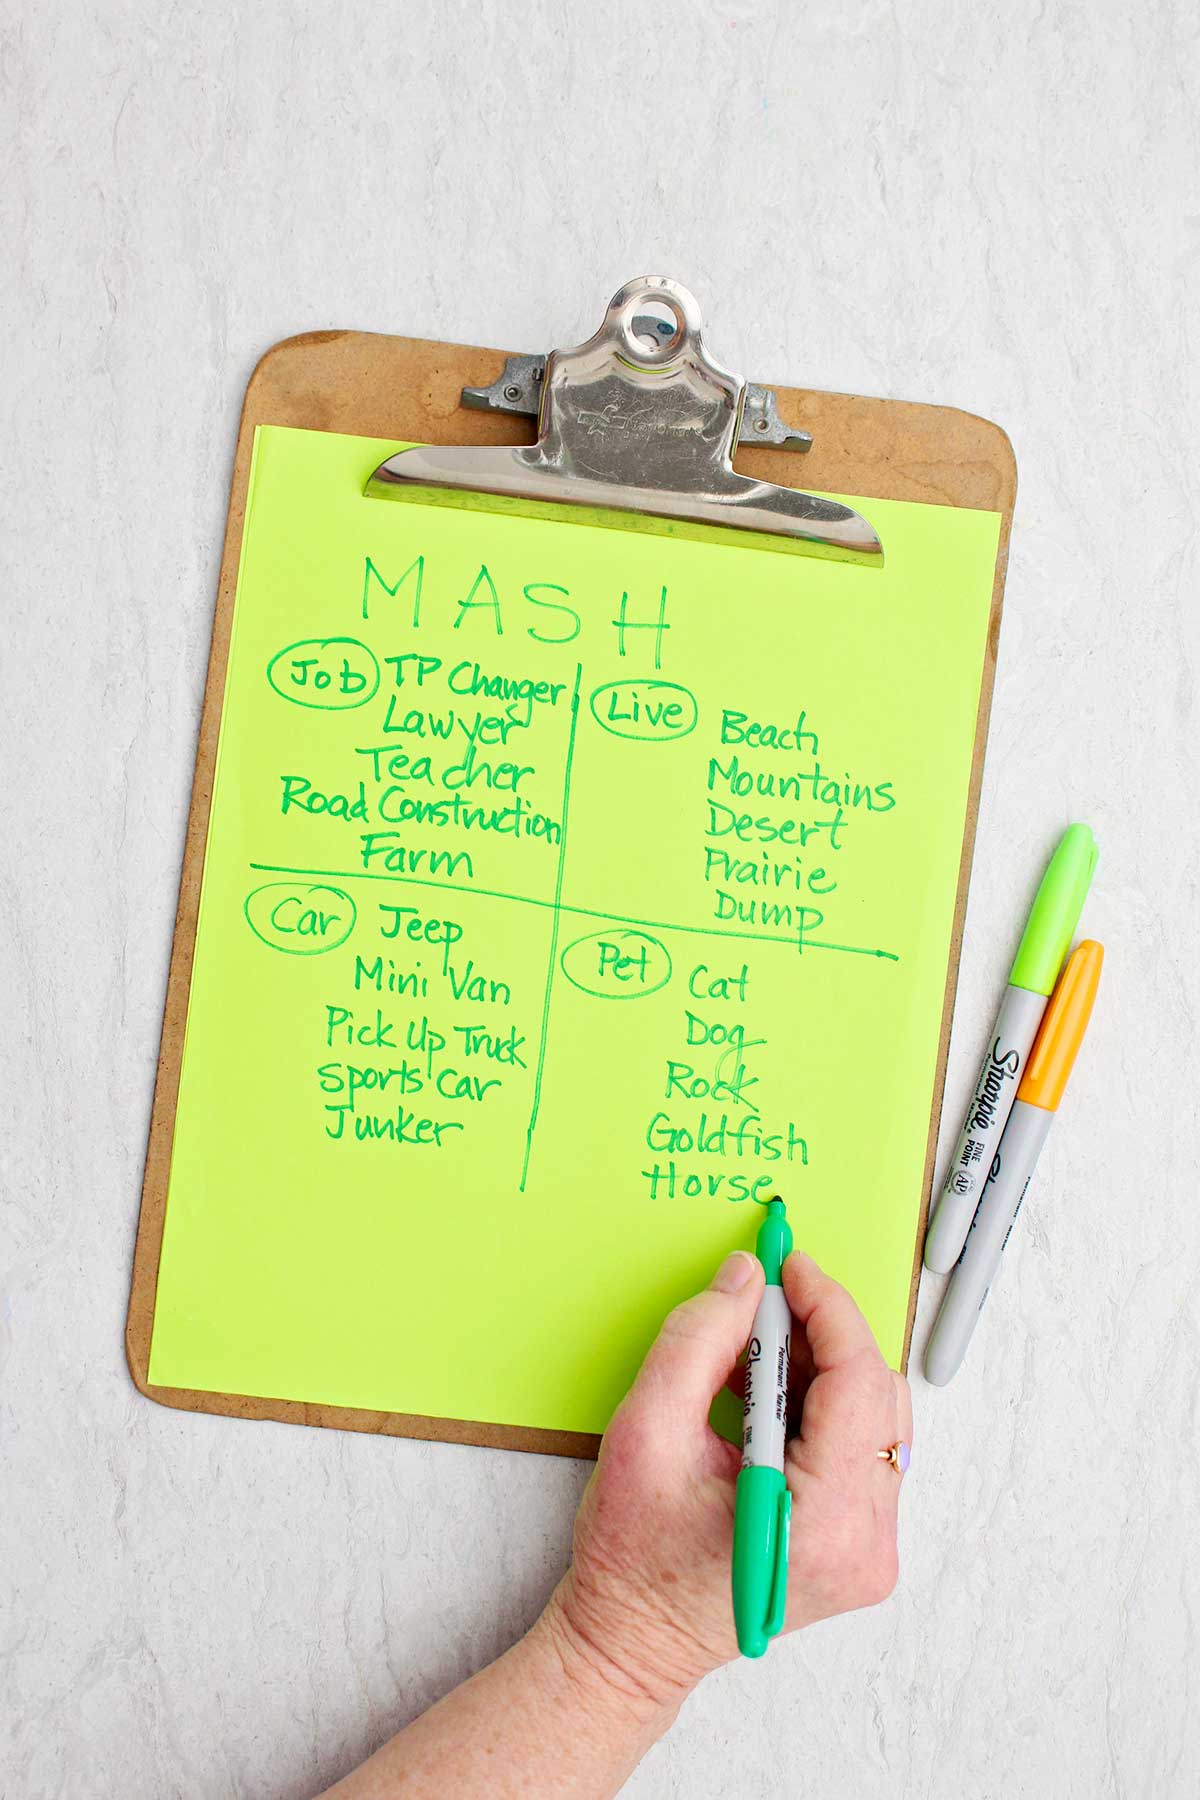 MASH
Job TP Changer
Lawyer
Teacher
Road Construction
Farm
Live Beach
Mountains
Desert
Prairie
Dump
Car Jeep
Mini Van
Pick Up Truck
Sports Car
Junker
Pet Cat
Dog
Rock
Goldfish
Horse
Sharpie
Permanent Marker
FINE
POINT
AP
Permanent Marker
Sharpie
Permanent Marker
FINE